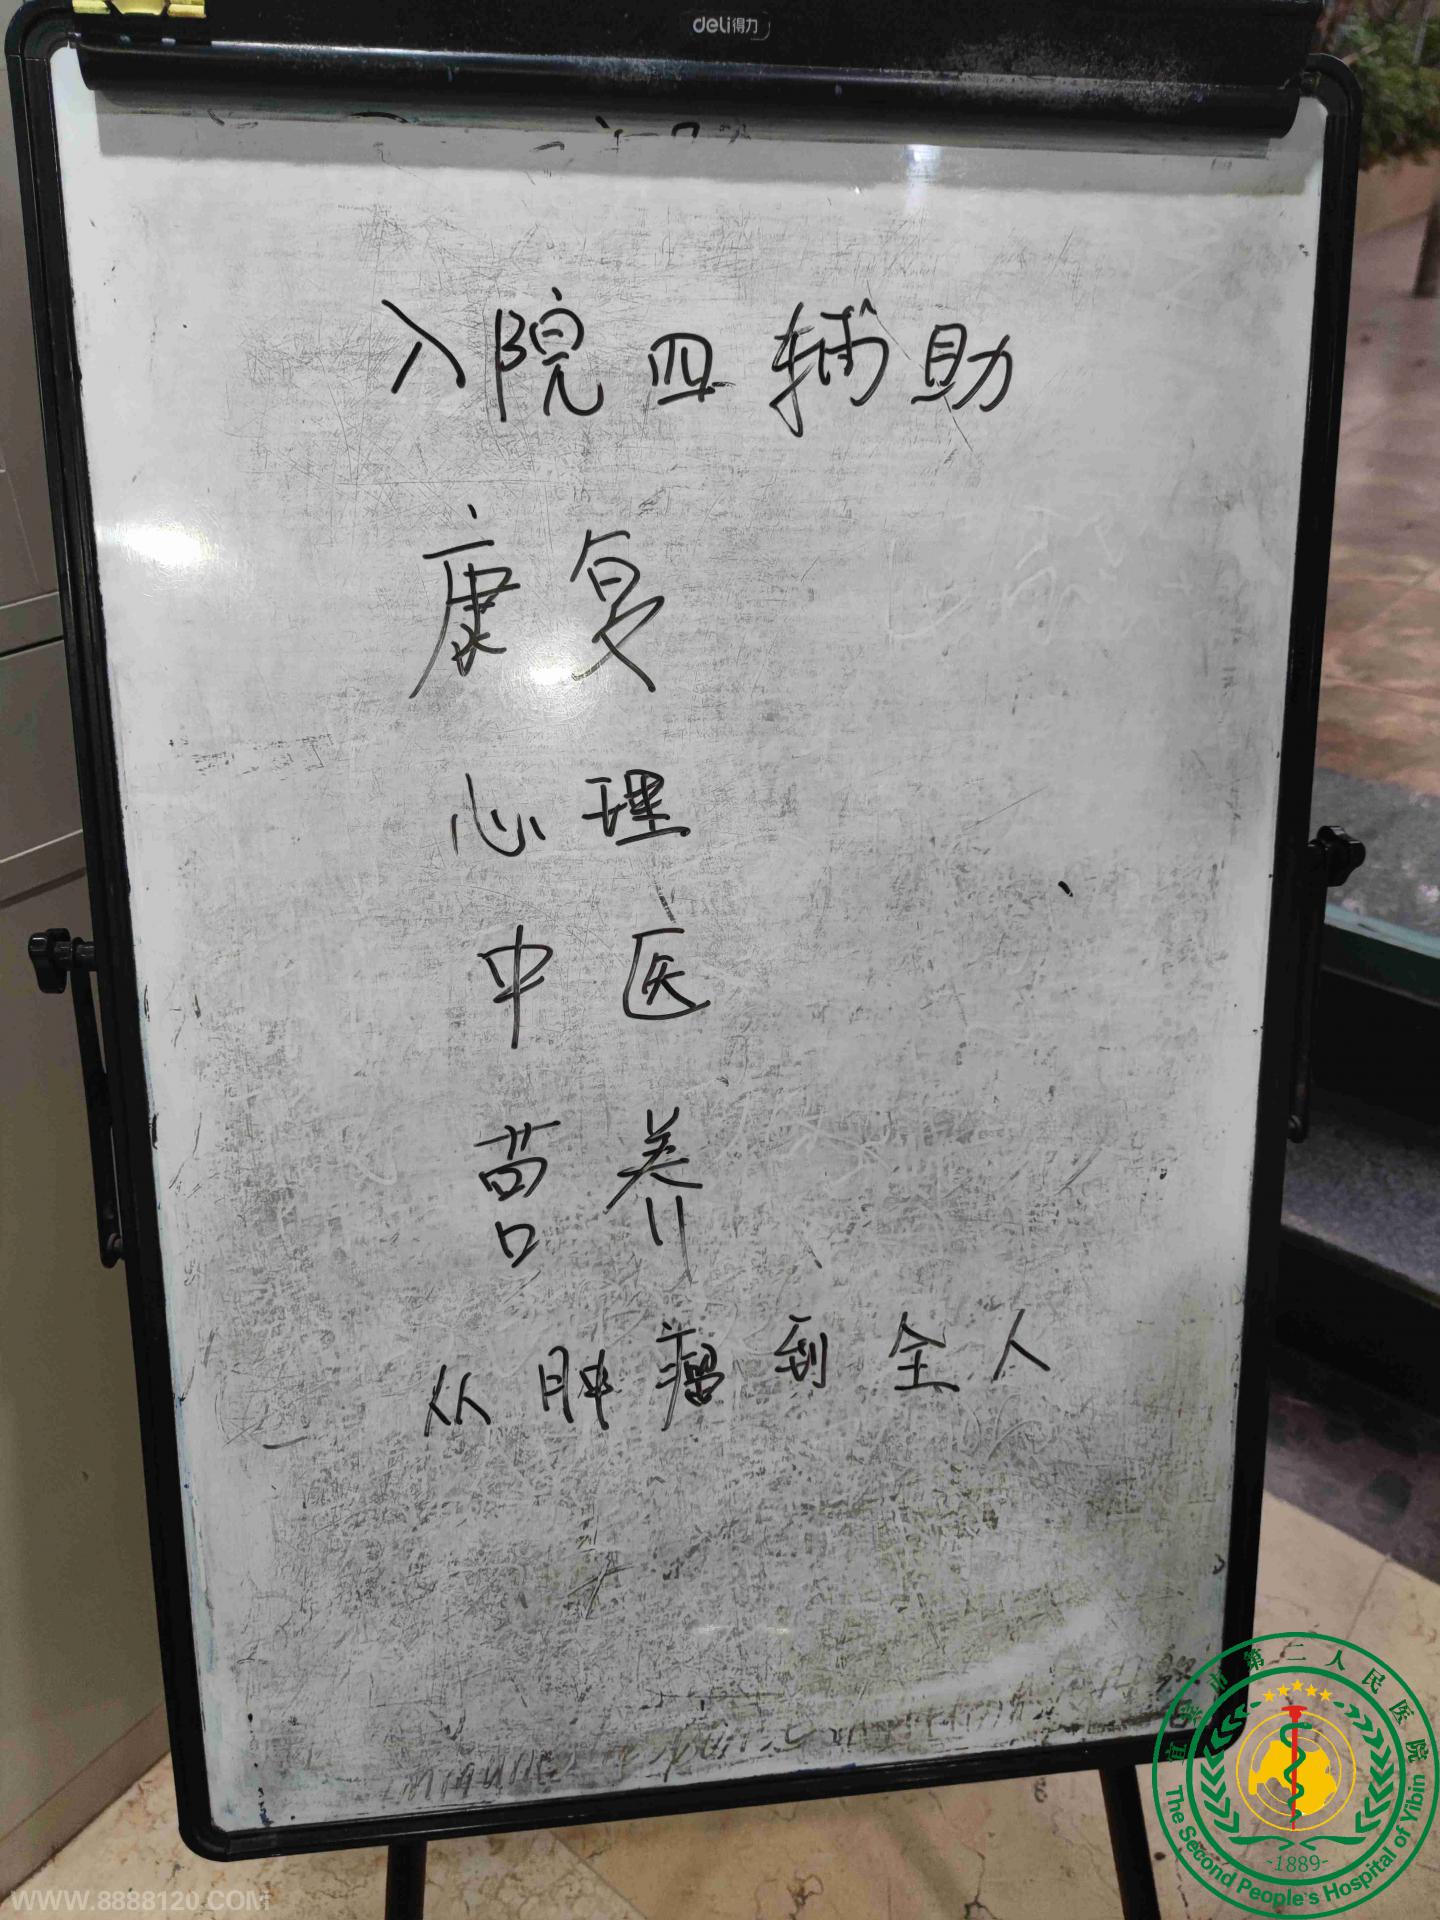 deli得力
入院四辅助
康复
心理
中医
营养
从肿瘤到全人
宜宾市第二人民医院
-1889-
The Second People's Hospital of Yibin
WWW.8888120.COM